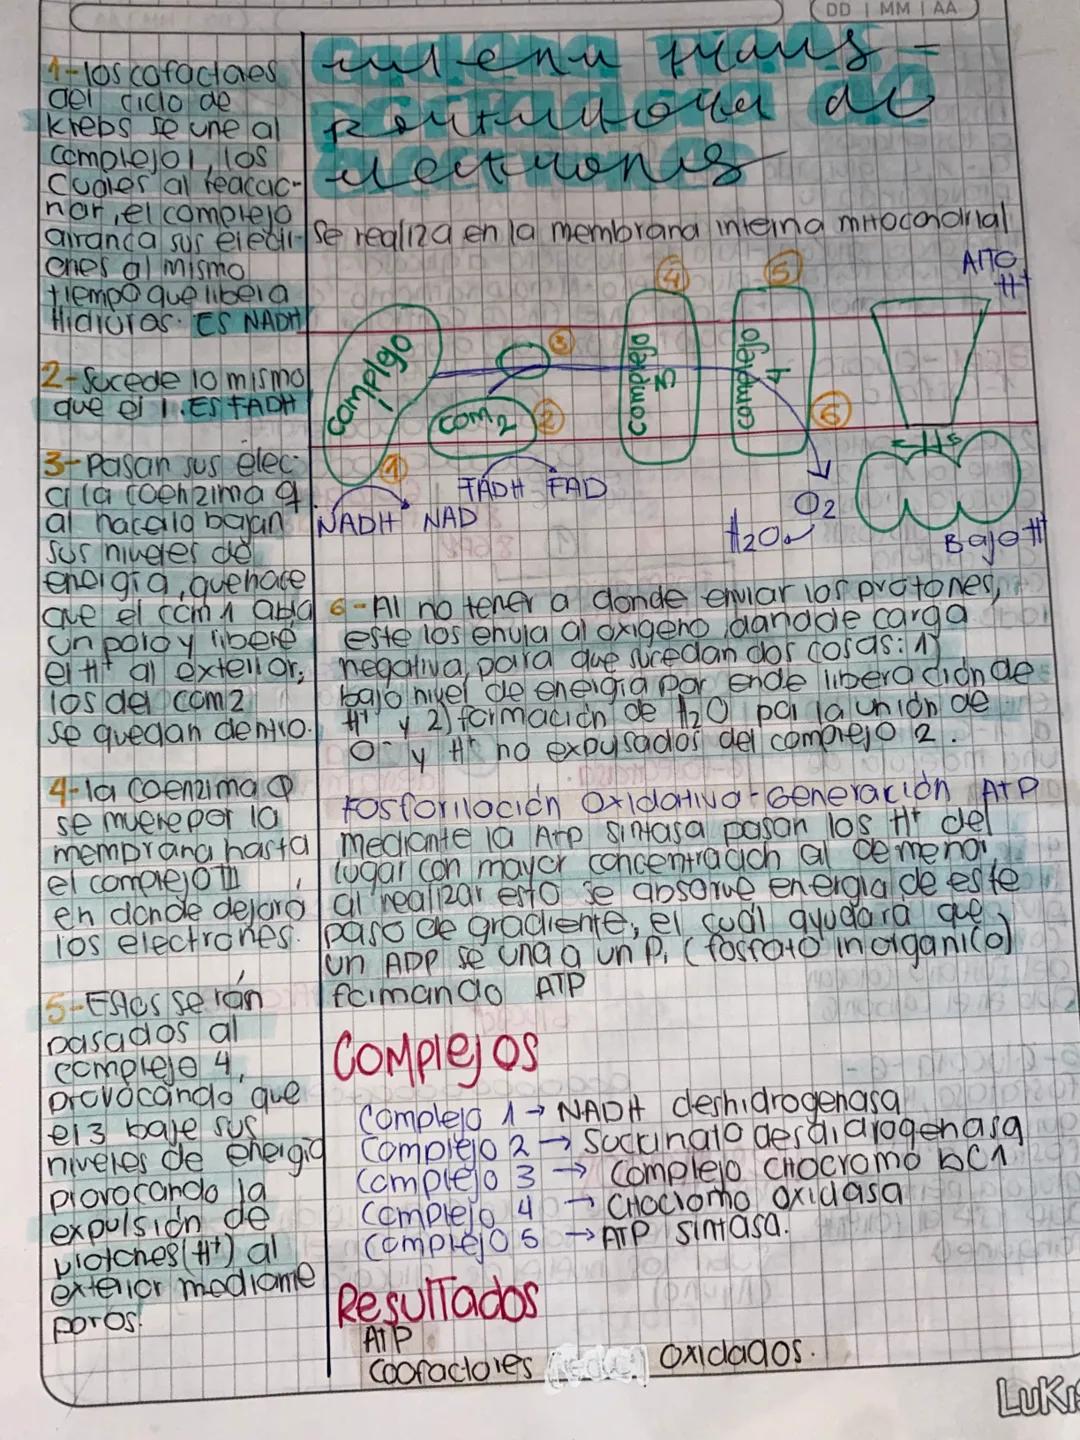 DD MM AA
cadena trans-
portadora de
electrones
1-los cofactores
del ciclo de
Krebs se une al
complejo 1, los
cuales al reacac-
nar, el complejo
arranca sus electr-
ones al mismo
tiempo que libera
Hidruros. ES NADH
2-Sucede lo mismo
que el 1. ES FADH
3-Pasan sus elec.
a la coenzima q
al hacerlo bajan
sus niveles de
energia, que hace
que el com 1 abra
un poro y libere
el H+ al exterior,
los del com2
se quedan dentro.
4-la coenzima Q
se mueve por la
membrana hasta
el complejo III,
en donde dejara
los electrones.
5-Estos serán
pasados al
complejo 4,
provocando que
el 3 baje sus
niveles de energia
provocando la
expulsión de
protones (H+) al
exterior mediante
poros.
Se realiza en la membrana interna mitocondrial
4
5
Alto
H+
complejo
3
com2
2
complejo
3
complejo
4
6
H+s
1
FADH FAD
NADH NAD
O2
H2O
Bajo H+
6-Al no tener a donde enviar los protones,
este los envia al oxigeno dandole carga
negativa, para que sucedan dos cosas: 1)
bajo nivel de energia por ende liberación de
H+ y 2) formación de H2O por la unión de
O- y H+ no expulsados del complejo 2.
Fosforilación Oxidativa-Generación ATP
mediante la Atp sintasa pasan los H+ del
lugar con mayor concentración al de menor,
al realizar esto se absorve energia de este
paso de gradiente, el cual ayudara que
un ADP se una a un Pi (fosfato inorganico)
formando ATP
Complejos
Complejo 1→ NADH deshidrogenasa
Complejo 2 → Succinato desdidrogenasa
Complejo 3 → Complejo chocromo bC1
Complejo 4 → Chocromo oxidasa
Complejo 5 → ATP sintasa.
Resultados
ATP
Coofactores oxidados.